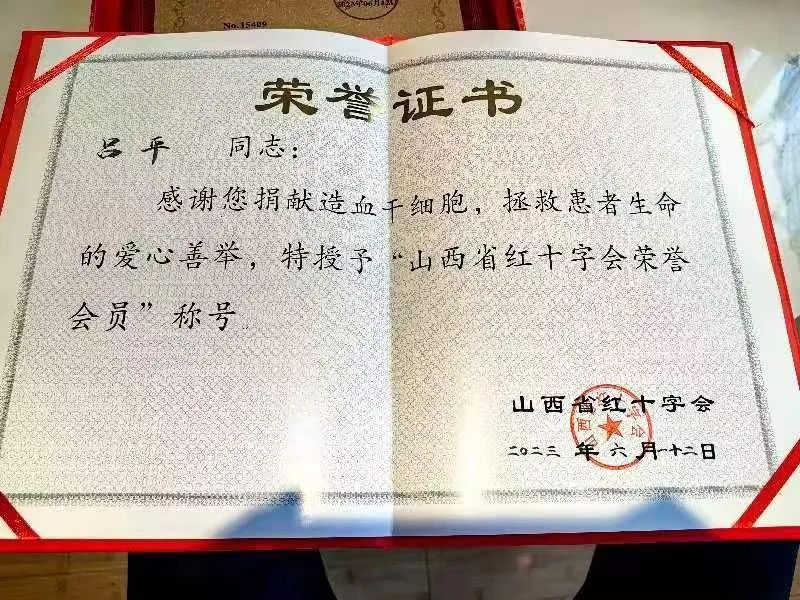 No.15409
2023年06月12日
荣誉证书
吕平 同志：
感谢您捐献造血干细胞，拯救患者生命
的爱心善举，特授予“山西省红十字会荣誉
会员”称号
山西省红十字会
二〇二三年六月一十二日